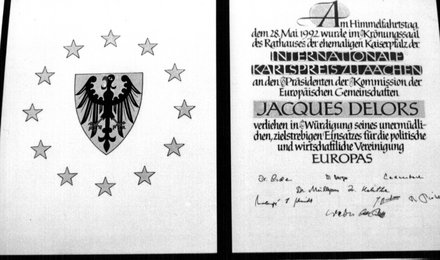 Am Himmelfahrtstag,
dem 28. Mai 1992 wurde im Krönungssaal
des Rathauses der ehemaligen Kaiserpfalz der
INTERNATIONALE
KARLSPREIS ZU AACHEN
an den Präsidenten der Kommission der
Europäischen Gemeinschaften
JACQUES DELORS
verliehen in Würdigung seines unermüdli-
chen, zielstrebigen Einsatzes für die politische
und wirtschaftliche Vereinigung
EUROPAS